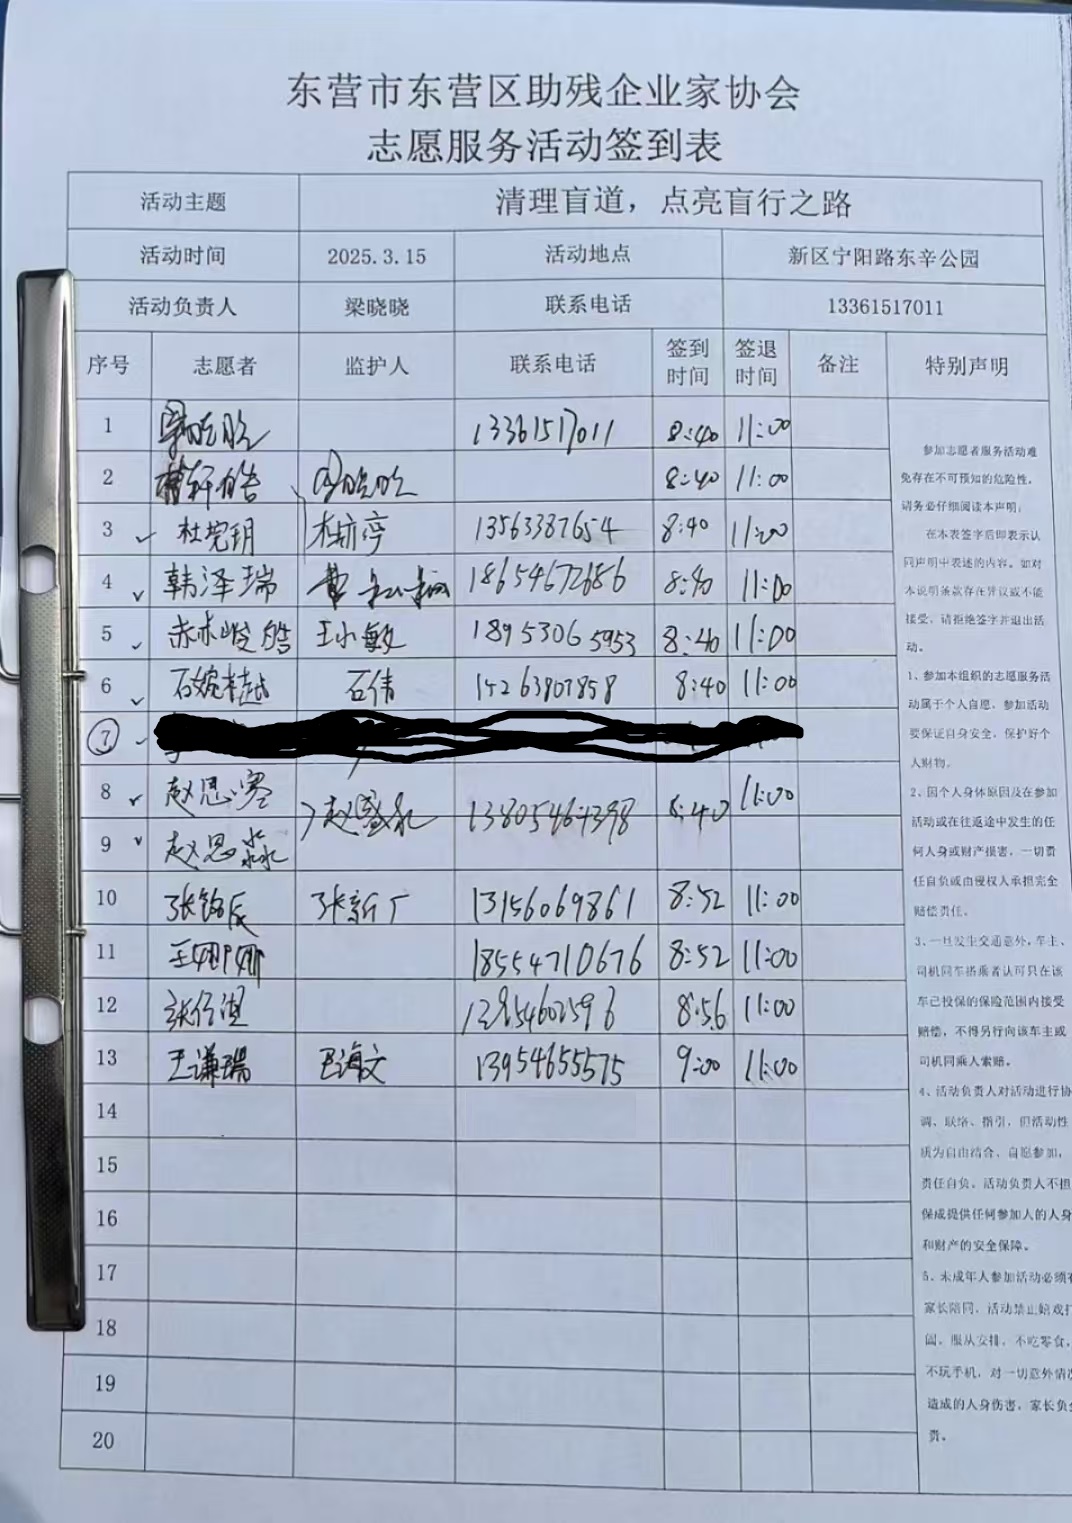 东营市东营区助残企业家协会
志愿服务活动签到表
活动主题 清理盲道，点亮盲行之路
活动时间 2025.3.15 活动地点 新区宁阳路东辛公园
活动负责人 梁晓晓 联系电话 13361517011
序号 志愿者 监护人 联系电话 签到时间 签退时间 备注 特别声明
1 13361517011 8:40 11:00
2 8:40 11:00
3 13563387654 8:40 11:00
4 韩泽瑞 18654672686 8:40 11:00
5 王小敏 18953065953 8:40 11:00
6 石倩 8:40 11:00
7
8 赵思 赵盛 8:40 11:00
9 赵思淼
10 张铭辰 张新广 13156069861 8:52 11:00
11 王姗姗 18554710676 8:52 11:00
12 8:56 11:00
13 王谦瑞 王海文 13954655575 9:00 11:00
14
15
16
17
18
19
20
参加志愿者服务活动难
免存在不可预知的危险性，
请务必仔细阅读本声明；
在本表签字后即表示认
同声明中表述的内容。如对
本说明条款存在异议或不能
接受，请拒绝签字并退出活
动。
1、参加本组织的志愿服务活
动属于个人自愿，参加活动
要保证自身安全，保护好个
人财物。
2、因个人身体原因及在参加
活动或在往返途中发生的任
何人身或财产损害，一切责
任自负或由侵权人承担完全
赔偿责任。
3、一旦发生交通意外，车主、
司机同车搭乘者认可只在该
车已投保的保险范围内接受
赔偿，不得另行向该车主或
司机同乘人索赔。
4、活动负责人对活动进行协
调、联络、指引，但活动性
质为自由结合、自愿参加，
责任自负。活动负责人不担
保或提供任何参加人的人身
和财产的安全保障。
5、未成年人参加活动必须有
家长陪同，活动禁止嬉戏打
闹，服从安排，不吃零食，
不玩手机，对一切意外情况
造成的人身伤害，家长负全
责。